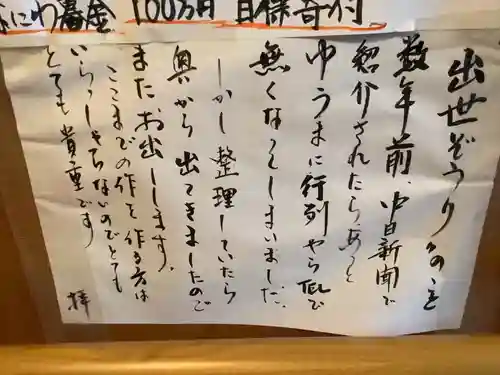 なにわ募金 100万円 目標寄付
出世ぞうりのこと
数年前、中日新聞で
紹介されたらあっと
ゆうまに行列やらTELで
無くなってしまいました。
しかし整理していたら
奥から出てきましたので
またお出しします。
ここまでの作を作る方は
いらっしゃらないのでとても
とても貴重です